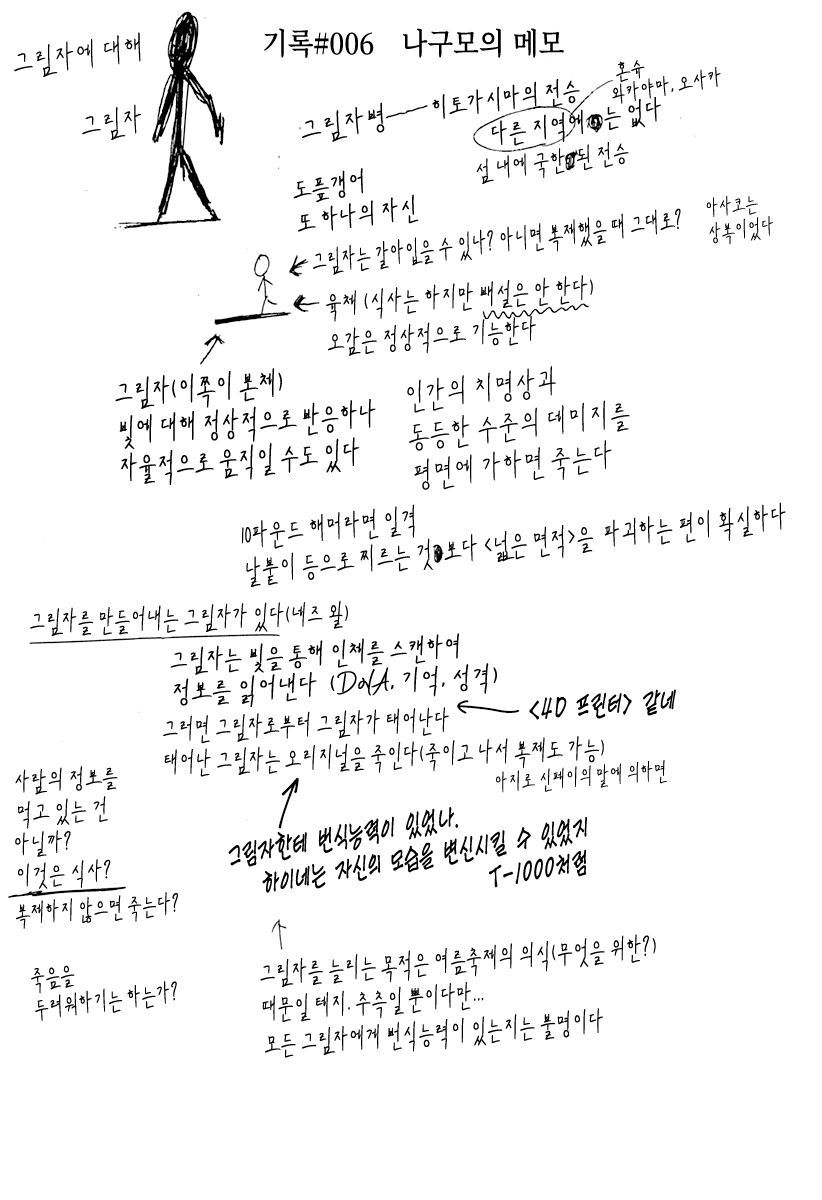 기록#006 나구모의 메모
그림자에 대해
그림자
그림자병 히토가시마의 전승
혼슈
와카야마, 오사카
다른 지역에는 없다
섬 내에 국한된 전승
도플갱어
또 하나의 자신
그림자는 갈아입을 수 있나? 아니면 복제했을 때 그대로?
아사코는
상복이었다
육체 (식사는 하지만 배설은 안 한다)
오감은 정상적으로 기능한다
그림자(이쪽이 본체)
빛에 대해 정상적으로 반응하나
자율적으로 움직일 수도 있다
인간의 치명상과
동등한 수준의 데미지를
평면에 가하면 죽는다
10파운드 해머라면 일격
날붙이 등으로 찌르는 것보다 <넓은 면적>을 파괴하는 편이 확실하다
그림자를 만들어내는 그림자가 있다(네즈 왈)
그림자는 빛을 통해 인체를 스캔하여
정보를 읽어낸다 (DNA, 기억, 성격)
그러면 그림자로부터 그림자가 태어난다
<4D 프린터> 같네
태어난 그림자는 오리지널을 죽인다(죽이고 나서 복제도 가능)
아지로 신페이의 말에 의하면
사람의 정보를
먹고 있는 건
아닐까?
이것은 식사?
복제하지 않으면 죽는다?
그림자한테 번식능력이 있었나.
하이네는 자신의 모습을 변신시킬 수 있었지
T-1000처럼
죽음을
두려워하기는 하는가?
그림자를 늘리는 목적은 여름축제의 의식(무엇을 위한?)
때문일 테지. 추측일 뿐이다만...
모든 그림자에게 번식능력이 있는지는 불명이다